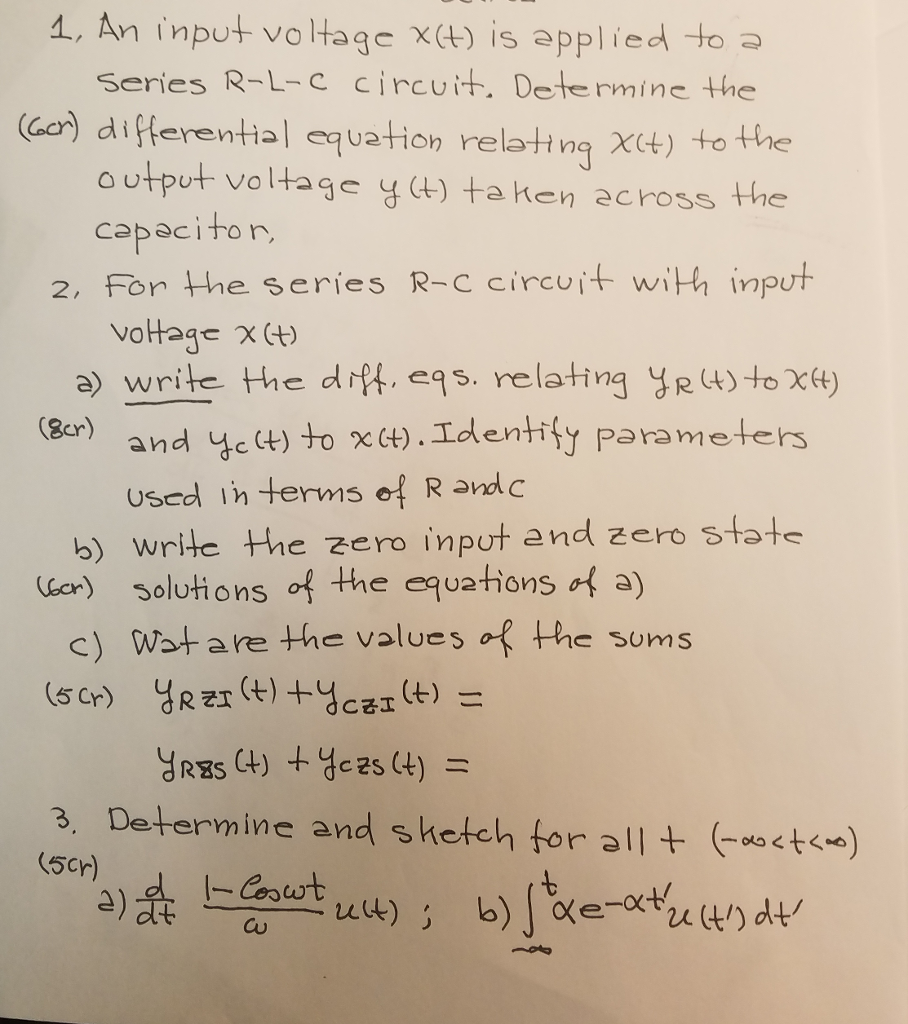 1, An input voltage x(t) is applied to a
series R-L-C circuit. Determine the
(6cr) differential equation relating x(t) to the
output voltage y(t) taken across the
capacitor,
2, For the series R-C circuit with input
voltage x(t)
a) write the diff. eqs. relating yR(t) to x(t)
(8cr) and yc(t) to x(t). Identify parameters
used in terms of R and C
b) write the zero input and zero state
(6cr) solutions of the equations of a)
c) Wat are the values of the sums
(5cr) yRZI(t) + yCZI(t) =
yRZS(t) + yCZS(t) =
3. Determine and sketch for all t (-∞<t<∞)
(5cr)
a) d/dt (1-Cosωt)/ω u(t) ; b) ∫_{-∞}^{t} αe^{-αt'} u(t') dt'